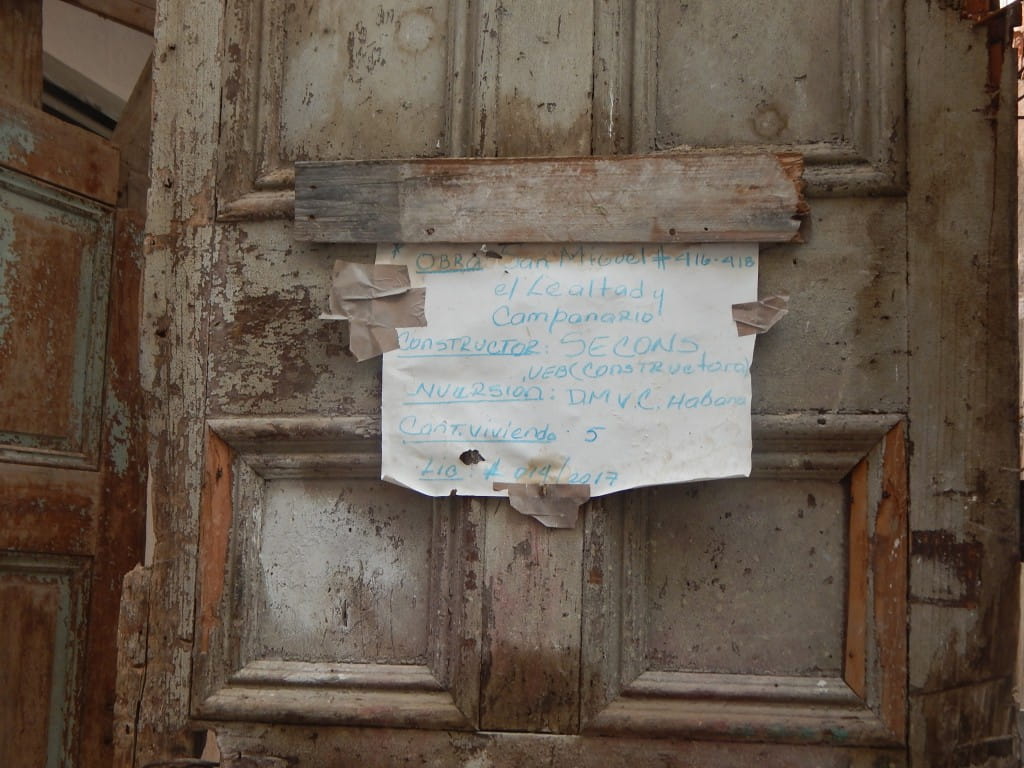 OBRA San Miguel # 416-418
e/ Lealtad y
Campanario
CONSTRUCTOR: SECONS
UEB (Constructora)
INVERSION: D.M.V.C. Habana
Cant. vivienda 5
Lic # 014/2017